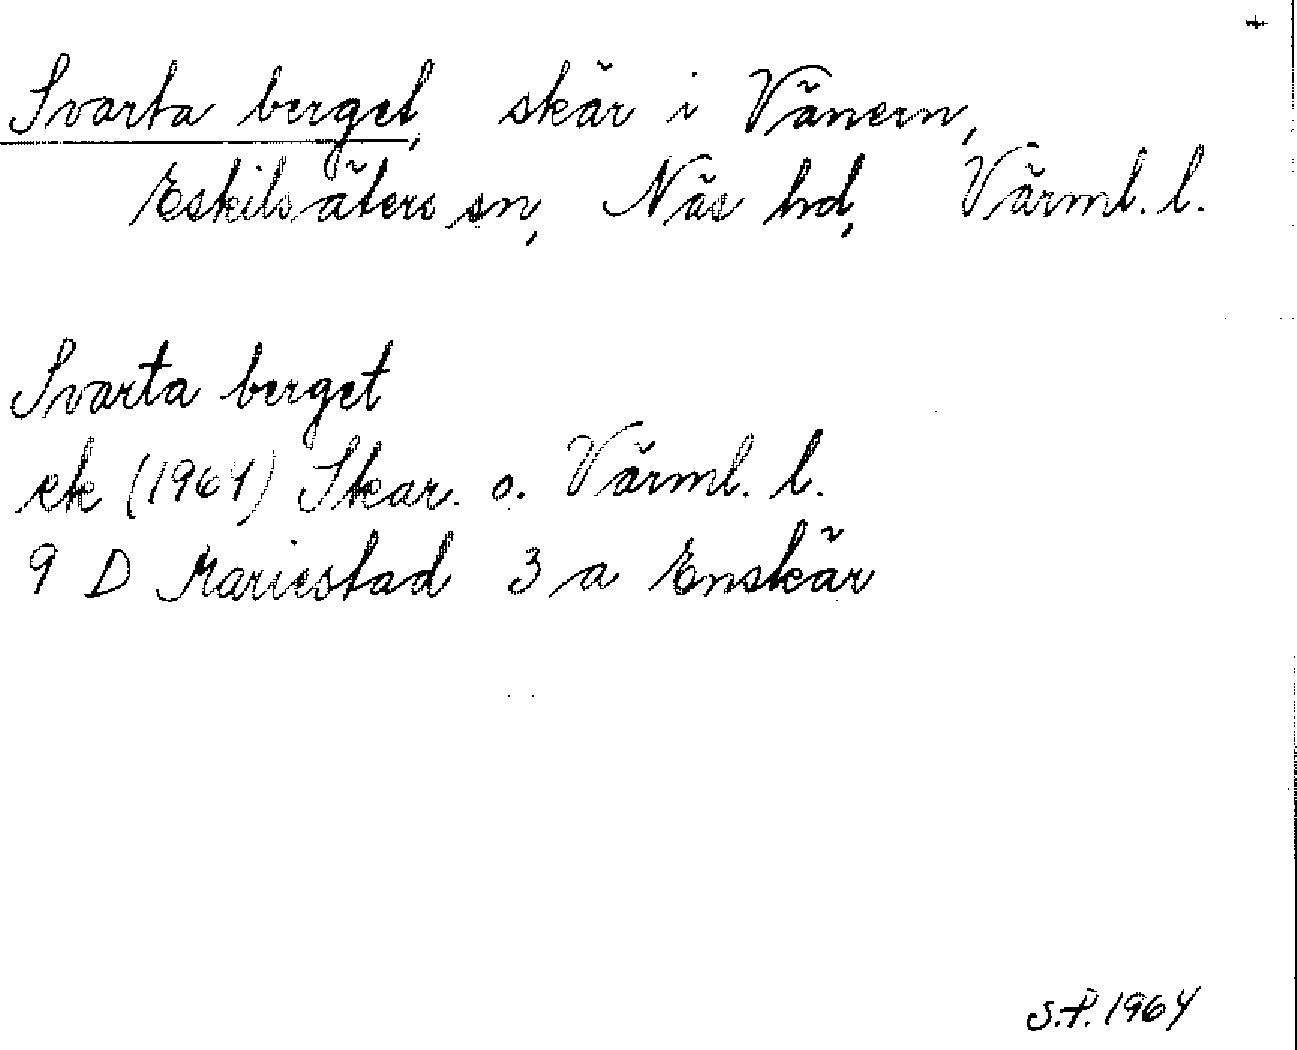 Svarta berget, skär i Vänern,
Eskilsäters sn, Näs hd, Värml. l.
Svarta berget
ek (1964) Skar. o. Värml. l.
9 D Mariestad 3 a Enskär
S.P. 1964